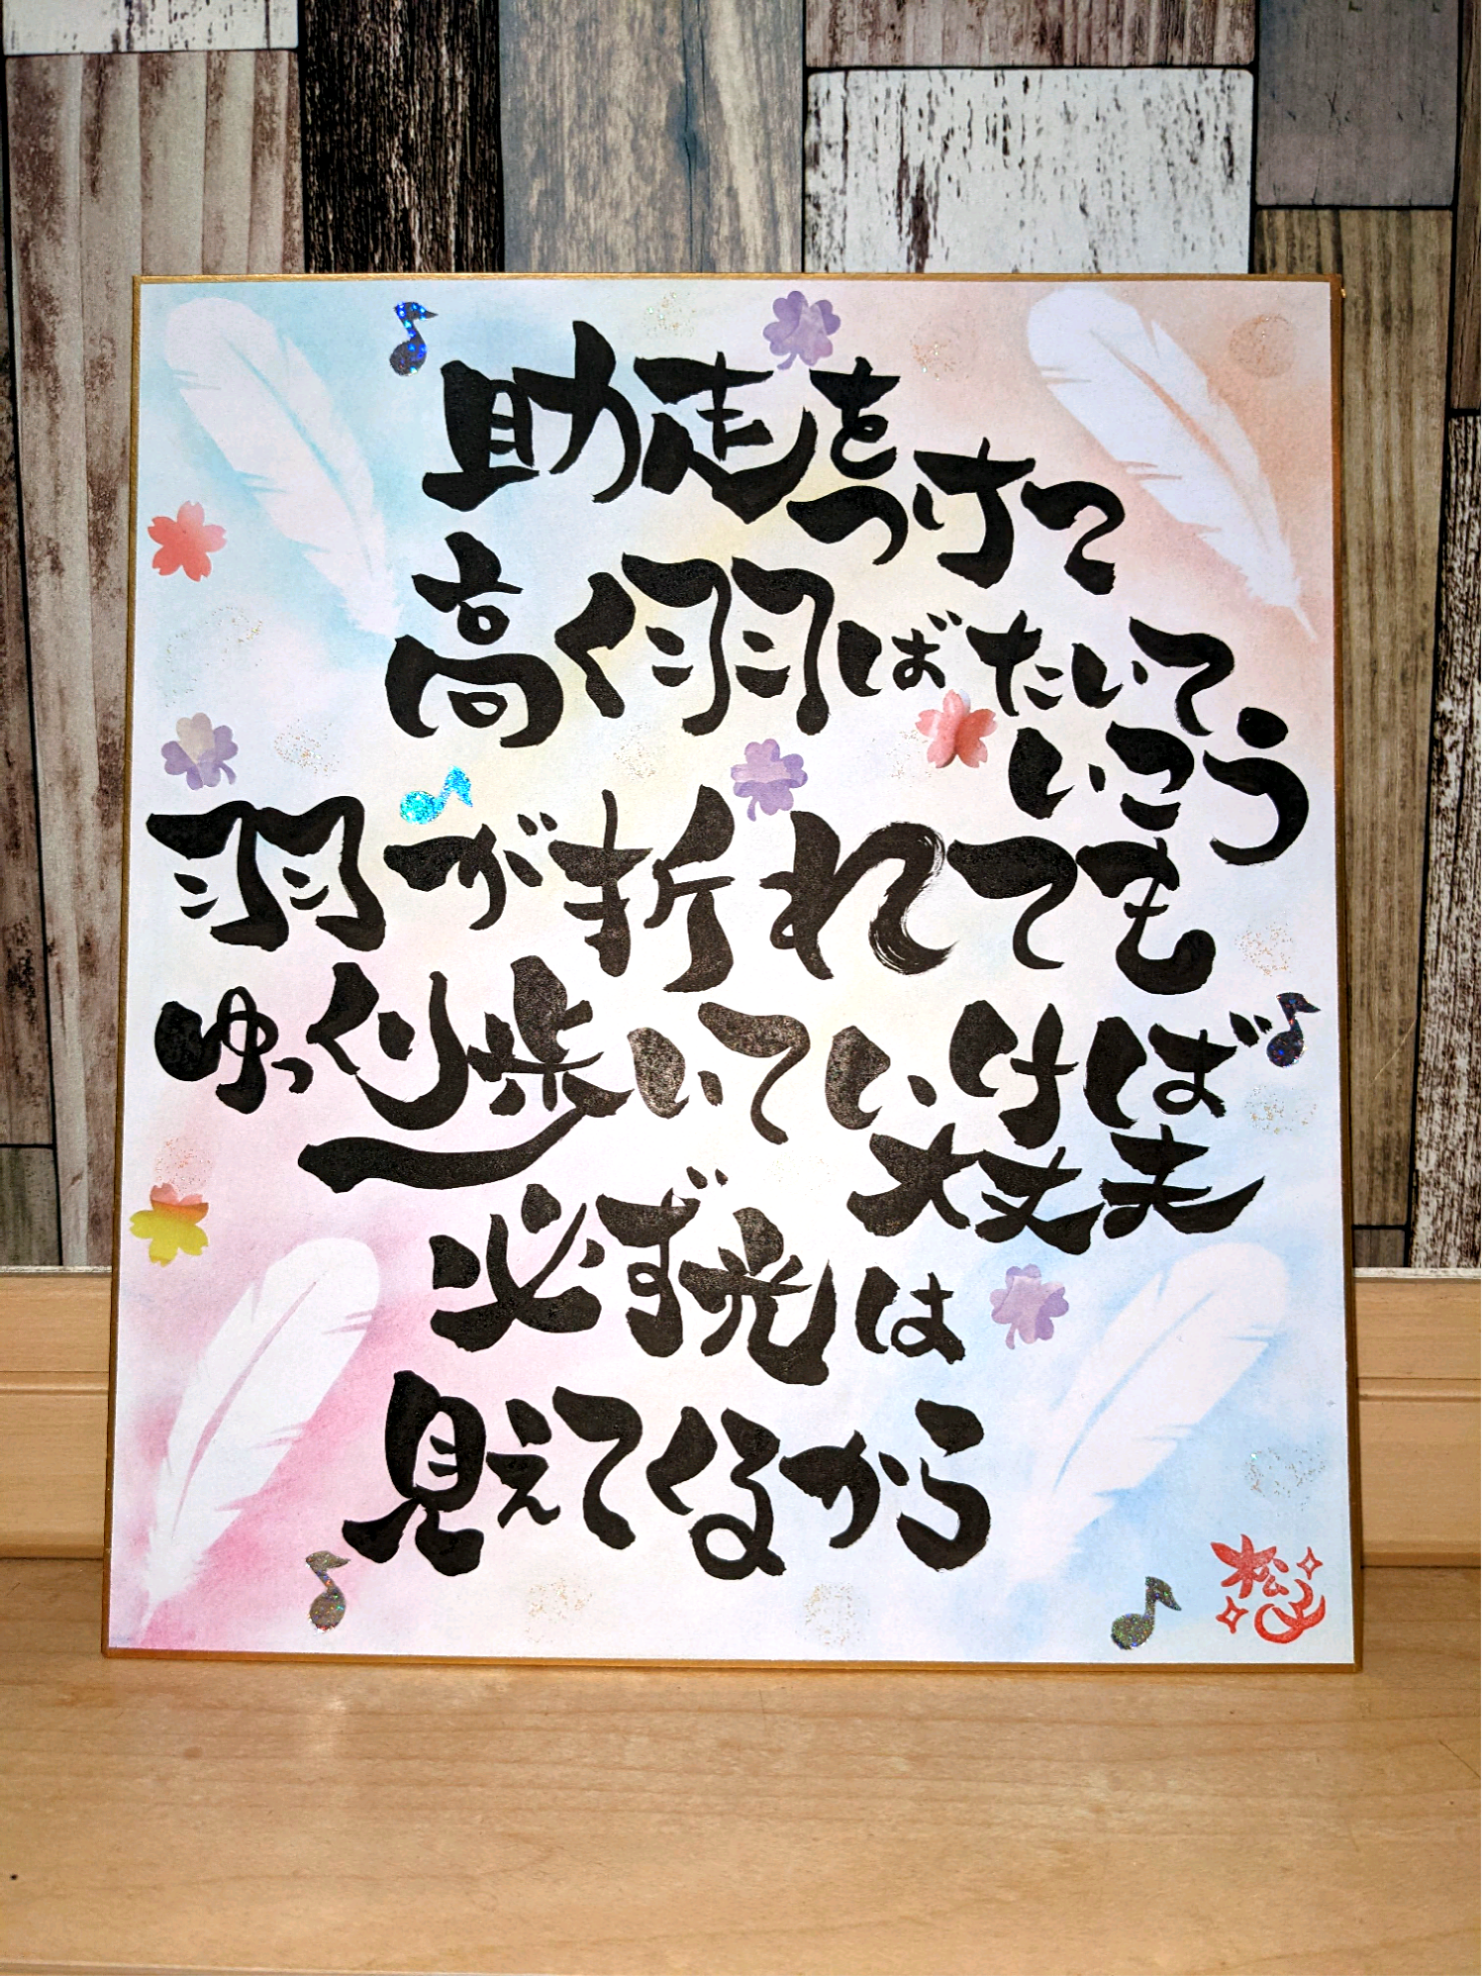 助走をつけて
高く羽ばたいて
いこう
羽が折れても
ゆっくり歩いていければ
大丈夫
必ず光は
見えてくるから
松子